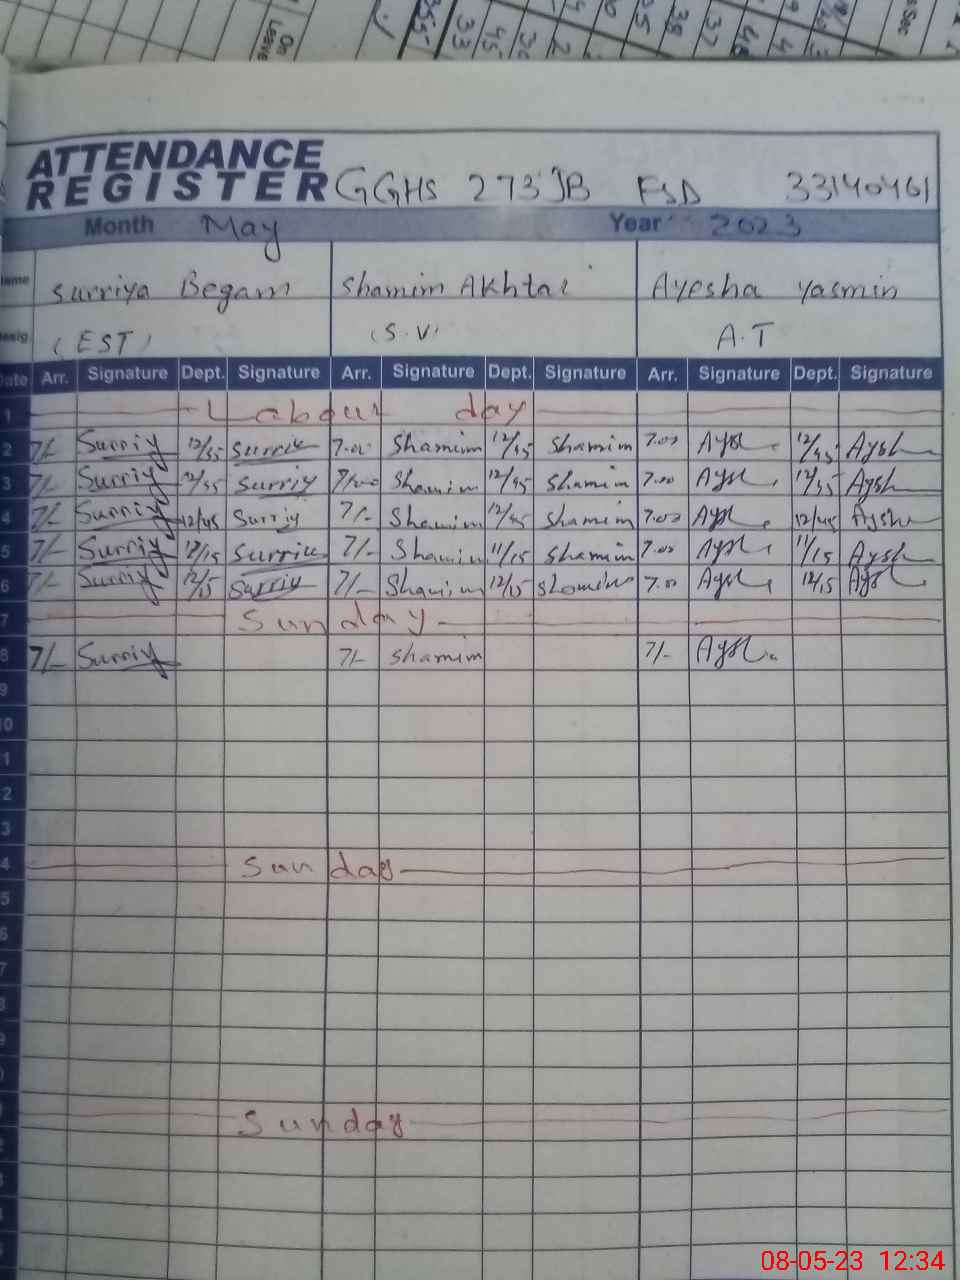 On
Leave
ATTENDANCE
REGISTER GGHS 273 JB FSD 33140461
Month May Year 2023
Surriya Begam Shamim Akhtar Ayesha Yasmin
(EST) (S.V) A.T
Date Arr. Signature Dept. Signature Arr. Signature Dept. Signature Arr. Signature Dept. Signature
1 Labour day
2 7/- Surriy 12/45 Surriy 7.00 Shamim 12/45 Shamim 7.00 Aysh 12/45 Aysh
3 7/- Surriy 12/45 Surriy 7/00 Shamim 12/45 Shamim 7.00 Aysh 12/45 Aysh
4 7/- Surriy 12/45 Surriy 7/- Shamim 12/45 Shamim 7.00 Aysh 12/45 Aysh
5 7/- Surriy 11/15 Surriy 7/- Shamim 11/15 Shamim 7.00 Aysh 11/15 Aysh
6 7/- Surriy 12/15 Surriy 7/- Shamim 12/15 Shamim 7.00 Aysh 12/15 Aysh
7 Sunday
8 7/- Surriy 7/- Shamim 7/- Aysh
9
10
1
2
3
4 Sunday
5
6
7
8
9
Sunday
08-05-23 12:34